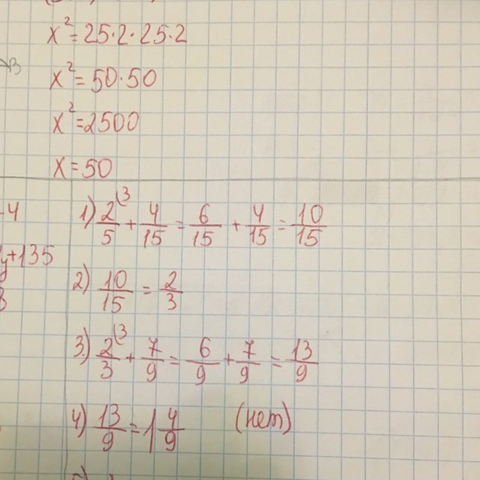 x² = 25·2·25·2
x² = 50·50
x² = 2500
x = 50
-4
y+135
1) 2/5 (3 + 4/15 = 6/15 + 4/15 = 10/15
2) 10/15 = 2/3
3) 2/3 (3 + 7/9 = 6/9 + 7/9 = 13/9
4) 13/9 = 1 4/9 (нет)